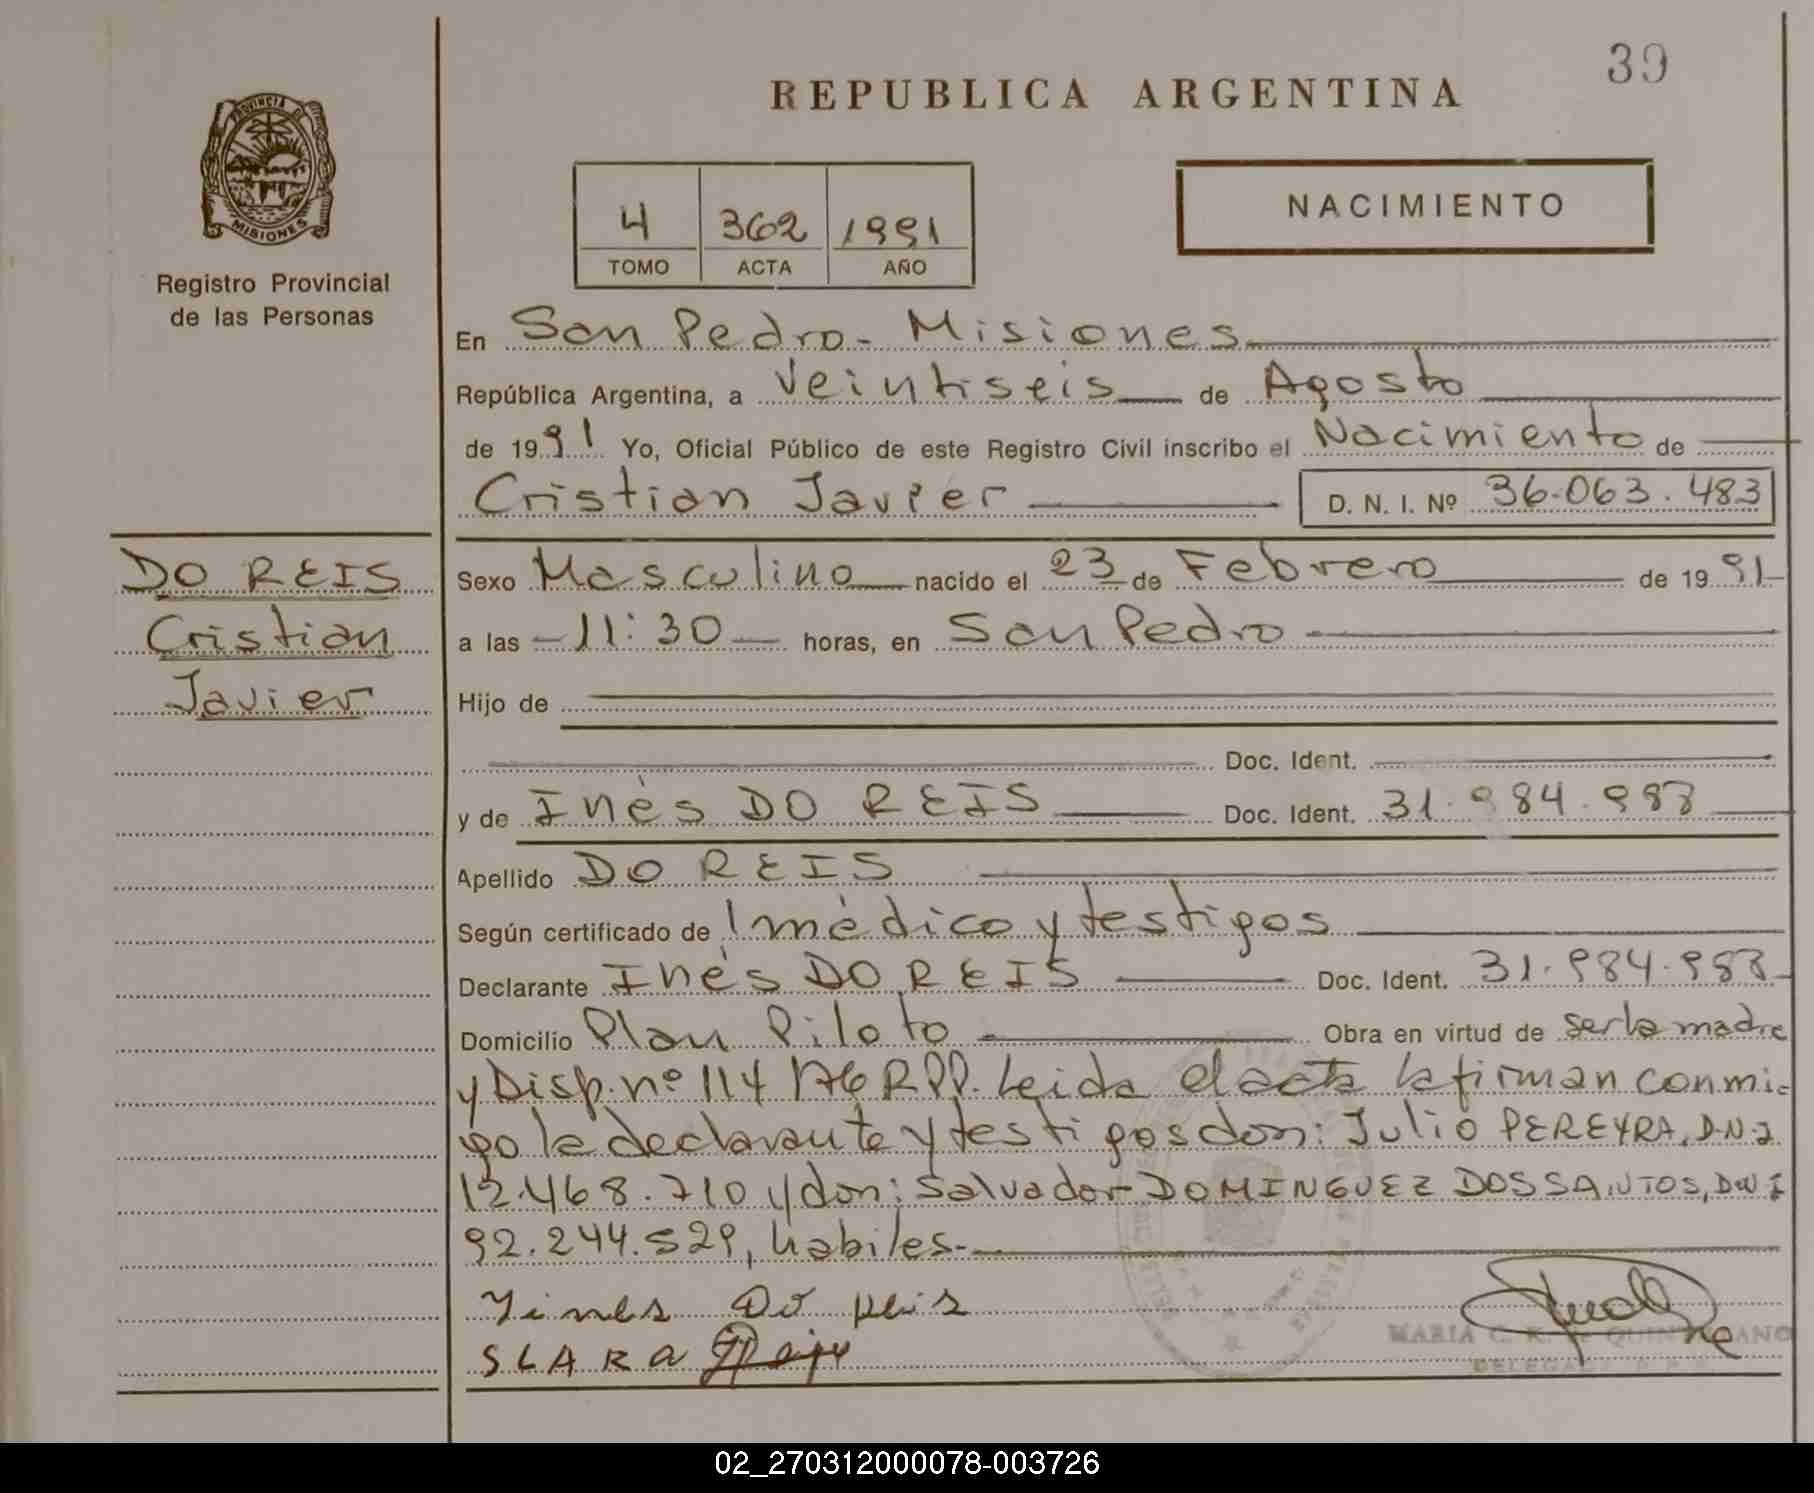 39
REPUBLICA ARGENTINA
PROVINCIA DE
MISIONES
Registro Provincial
de las Personas
4 362 1991
TOMO ACTA AÑO
NACIMIENTO
En San Pedro - Misiones
República Argentina, a Veintiseis de Agosto
de 1991 Yo, Oficial Público de este Registro Civil inscribo el Nacimiento de
Cristian Javier D. N. I. Nº 36.063.483
DO REIS
Cristian
Javier
Sexo Masculino nacido el 23 de Febrero de 1991
a las 11:30 horas, en San Pedro
Hijo de
Doc. Ident.
y de Inés DO REIS Doc. Ident. 31.984.983
Apellido DO REIS
Según certificado de 1 médico y testigos
Declarante Inés DO REIS Doc. Ident. 31.984.983
Domicilio Plan Piloto Obra en virtud de ser la madre
y Disp. nº 114/76 RPP. Leida el acta la firman conmi-
go la declarante y testigos don: Julio PEREYRA, D.N.I.
12.468.710 y don: Salvador DOMINGUEZ DOS SANTOS, D.N.I
92.244.529, habiles.-
Yines Do Reis
MARIA C. R. DE
DELEGADA
02_270312000078-003726